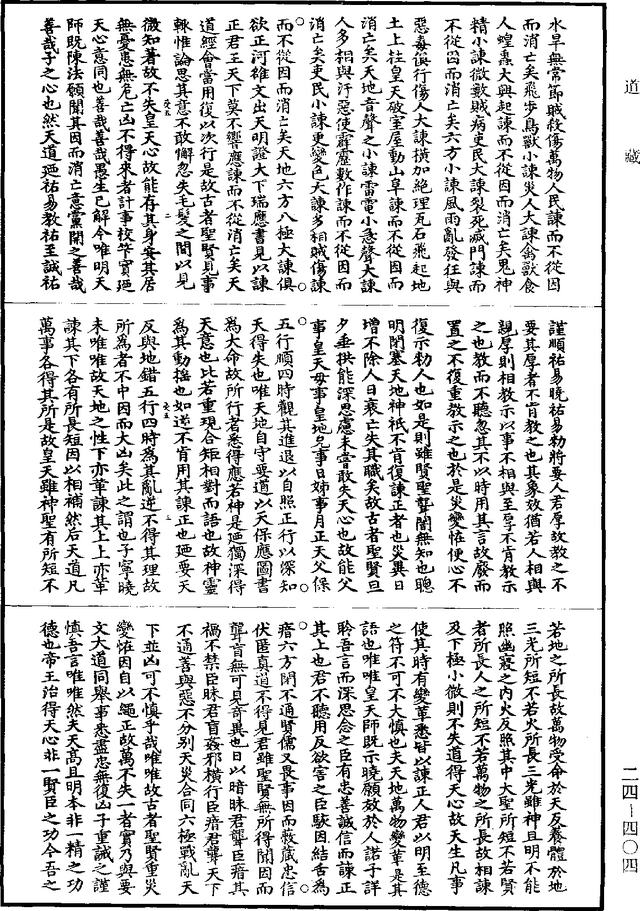 水旱無常節賊殺傷萬物人民諫而不從因
而消亡矣飛步鳥獸小諫災人大諫禽獸食
人蝗蟲大興起諫而不從因而消亡矣鬼神
精小諫微數賊病吏民大諫裂死滅門諫而
不從因而消亡矣六方小諫風雨亂發狂與
惡毒俱行傷人大諫橫加絶理瓦石飛起地
土上柱皇天破室屋動山阜諫而不從因而
消亡矣天地音聲之小諫雷電小急聲大諫
人多相與汙惡使霹靂數作諫而不從因而
消亡矣吏民小諫更變色大諫多相賊傷諫
而不從因而消亡矣天地六方八極大諫俱
欲正河雒文出天明證大下瑞應書見以諫
正君王天下莫不響應諫而不從消亡矣天
道經會當用復以次行是故古者聖賢見事
輒惟論思其意不敢懈忽失毛髮之間以見
微知著故不失皇天心故能存其身安其居
無憂患無危亡凶不得來者計事校筭實迺
天心意同也善哉善哉愚生已解今唯明天
師既陳法願聞其因而消亡意黨開之善哉
善哉子之心也然天道迺祐易教祐至誠祐
謹順祐易曉祐易勑將要人君厚故教之不
要其厚者不肯教之也其象效猶若人相與
親厚則相教示以事不相與至厚不肯教示
之也教而不聽忽其不以時用其言故廢而
置之不復重教示之也於是災變怪便心不
復示勑人也如是則雖賢聖聾闇無知也聰
明閉塞天地神祇不肯復諫正者也災異日
增不除人日衰亡失其職矣故古者聖賢旦
夕垂拱能深思慮未嘗敢失天心也故能父
事皇天母事皇地兄事日姊事月正天文保
五行順四時觀其進退以自照正行以深知
天得失也唯天地自守要道以天保應圖書
為大命故所行者悉得應若神是迺獨深得
天意也比若重規合矩相對而語也故神靈
為其動搖也如逆不肯用其諫正也迺要天
反與地錯五行四時為其亂逆不得其理故
所為者不中因而大凶矣此之謂也子寧曉
未唯唯故天地之性下亦革諫其上上亦革
諫其下各有所長短因以相補然后天道凡
萬事各得其所是故皇天雖神聖有所短不
若地之所長故萬物受命於天反養體於地
三光所短不若火所長三光雖神且明不能
照幽寢之内火反照其中大聖所短不若賢
者所長人之所短不若萬物之所長故相諫
及下極小微則不失道得天心故天生凡事
使其時有變革悉皆以諫正人君以明至德
之符不可不大慎也夫天地萬物變革是其
語也唯唯皇天師既示曉願效於人諾子詳
聆吾言而深思念之臣有忠善誠信而諫正
其上也君不聽用反欲害之臣駭因結舌為
瘖六方閉不通賢儒又畏事因而蔽藏忠信
伏匿真道不得見君雖聖賢無所得聞因而
聾盲無可見奇異也日以暗昧君聾臣瘖其
禍不禁臣昧君盲姦邪橫行臣瘖君聾天下
不通善與惡不分別天災合同六極戰亂天
下並凶可不慎乎哉唯唯故古者聖賢重災
變怪因自以繩正故萬不失一者實乃與要
文大道同舉事悉盡忠無復凶子重誡之謹
慎吾言唯唯然夫天高且明本非一精之功
德也帝王治得天心非一賢臣之功今吾之
道藏
二四-四〇四